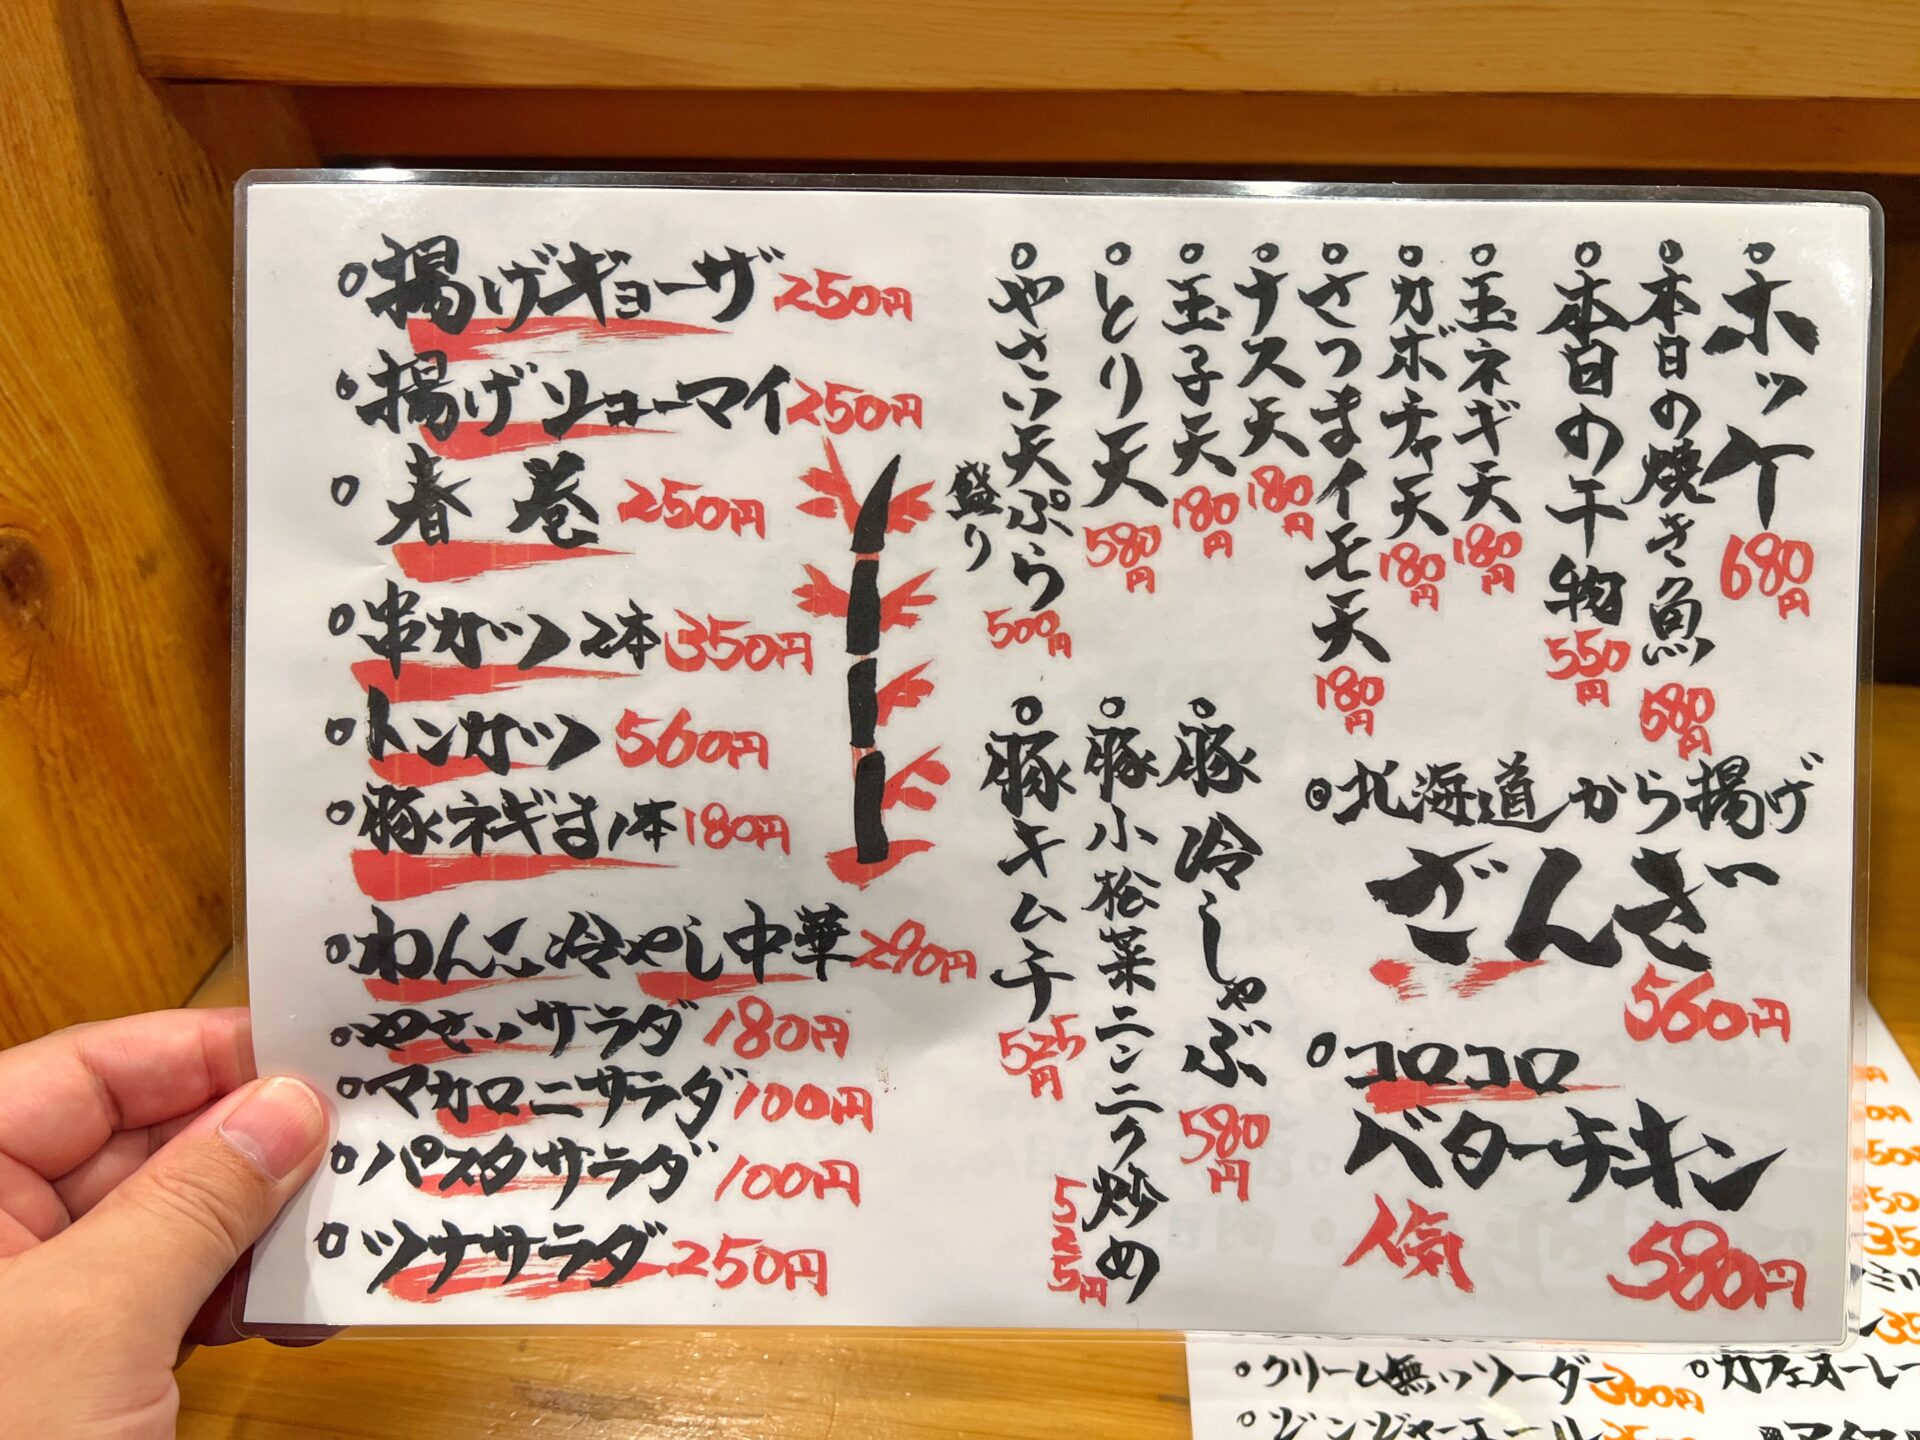 ホッケ 680円
本日の焼き魚 580円
本日の干物 550円
玉ネギ天 180円
カボチャ天 180円
さつまイモ天 180円
ナス天 180円
玉子天 180円
とり天 580円
やさい天ぷら盛り 500円
北海道から揚げ
ざんぎ 560円
コロコロ
バターチキン
人気 580円
豚冷しゃぶ 580円
豚小松菜ニンニク炒め 525円
豚キムチ 525円
揚げギョーザ 250円
揚げシューマイ 250円
春巻 250円
串カツ2本 350円
トンカツ 560円
豚ネギま1本 180円
わんこ冷やし中華 290円
やさいサラダ 180円
マカロニサラダ 100円
パスタサラダ 100円
ツナサラダ 250円
クリーム無しソーダー 360円
カフェオーレ
ジンジャーエール